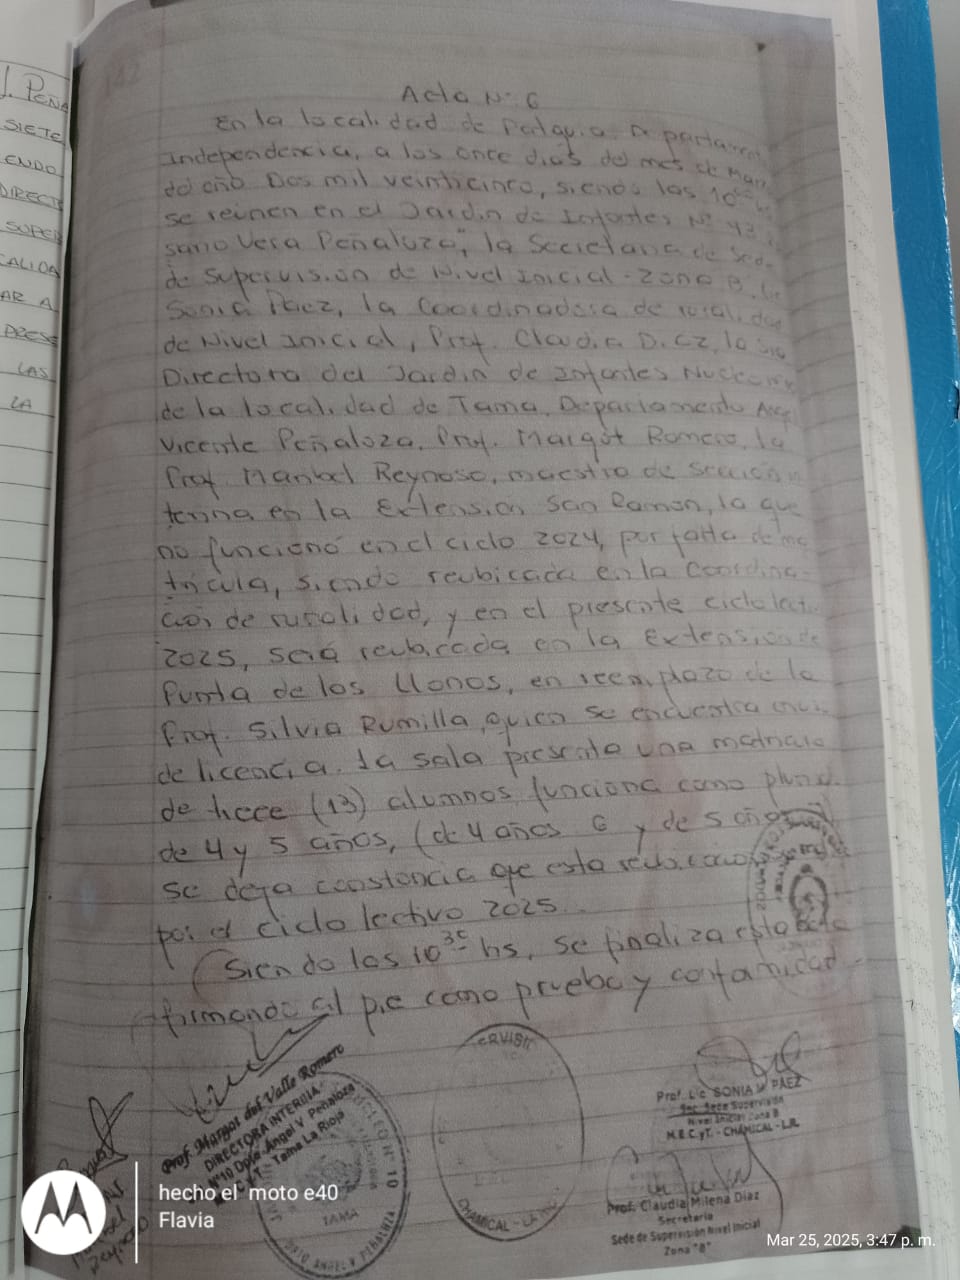 142
J. PEÑA
SIETE
ENDO
DIRECT
SUPER
CALIDA
AR A
PRESE
LAS
LA
Acta N° 6
En la localidad de Patquia, Departament
Independencia, a los once días del mes de Mar
del año Dos mil veinticinco, siendo las 10
se reúnen en el Jardin de Infantes N° 43
sario Vera Peñaloza", la Secretaria de Sede
de Supervisión de Nivel Inicial - Zona B, Lic
Sonia Páez, la Coordinadora de ruralidad
de Nivel Inicial, Prof. Claudia Díaz, la Sra
Directora del Jardin de Infantes Nucleo
de la localidad de Tama, Departamento Angel
Vicente Peñaloza, Prof. Margot Romero, la
Prof. Maribel Reynoso, maestra de sección in
terina en la Extensión San Ramon, la que
no funcionó en el ciclo 2024, por falta de ma
trícula, siendo reubicada en la Coordina-
ción de ruralidad, y en el presente ciclo lect
2025, será reubicada en la Extensión de
Punta de los Llanos, en reemplazo de la
Prof. Silvia Rumilla, quien se encuentra en
de licencia. La sala presenta una matricula
de trece (13) alumnos, funciona como plurid
de 4 y 5 años, (de 4 años 6 y de 5 años
Se deja constancia que esta reubicación
por el ciclo lectivo 2025.
Siendo las 10 35 hs, se finaliza esta acta
firmando al pie como prueba y conformidad.
Prof. Margot del Valle Romero
DIRECTORA INTERINA
N°10 Dpto. Angel V. Peñaloza
Tama La Rioja
NUCLEO N° 10
TAMA
DPTO ANGEL V. PEÑALOZA
ERVISI
CHAMICAL - LA
Prof. Lic SONIA M PAEZ
Sec. Sede Supervisión
Nivel Inicial Zona B
M.E.C.yT. - CHAMICAL - L.R.
Prof. Claudia Milena Diaz
Secretaria
Sede de Supervisión Nivel Inicial
Zona "B"
hecho el moto e40
Flavia
Mar 25, 2025, 3:47 p. m.